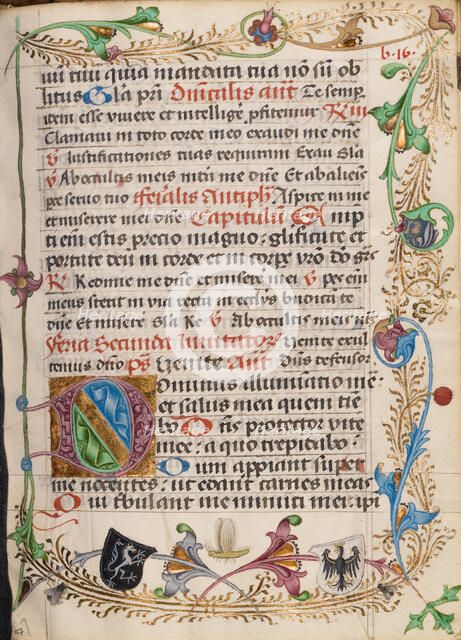 b·16·
uū tuū quia mandata tua nō sū ob
litus Gla pr̄i Dn̄icalis an̄t Te semp
item esse viuere et intellige ꝓfitemur
Clamaui in toto corde meo exaudi me dn̄e
v̄ Justificationes tuas requiram Exau Gla
v̄ Ab ocultis meis mūda me dn̄e Et ab alieīs
parce seruo tuo ferialis Antiph Aspice in me
et miserere mei dn̄e Capitulū Emp
ti em̄ estis precio magno: glificate et
portate deū in corde et in corpe vr̄o do gr̄s
R Redime me dn̄e et misere mei v̄ pes em̄
meus stetit in via recta in ecclijs bn̄dicā te
dn̄e Et misere Gla Re v̄ Ab ocultis meis
Feria Secunda Inuitator Venite exul
temus dn̄o p̄s Venite An̄t Dn̄s defensor
Dominus illuminatio me:
et salus mea quem tie
bo Dn̄s protector vite
mee: a quo trepidabo:
Dum appiant super
me nocentes: ut edant carnes meas
Qui tbulant me inimici mei: ipi